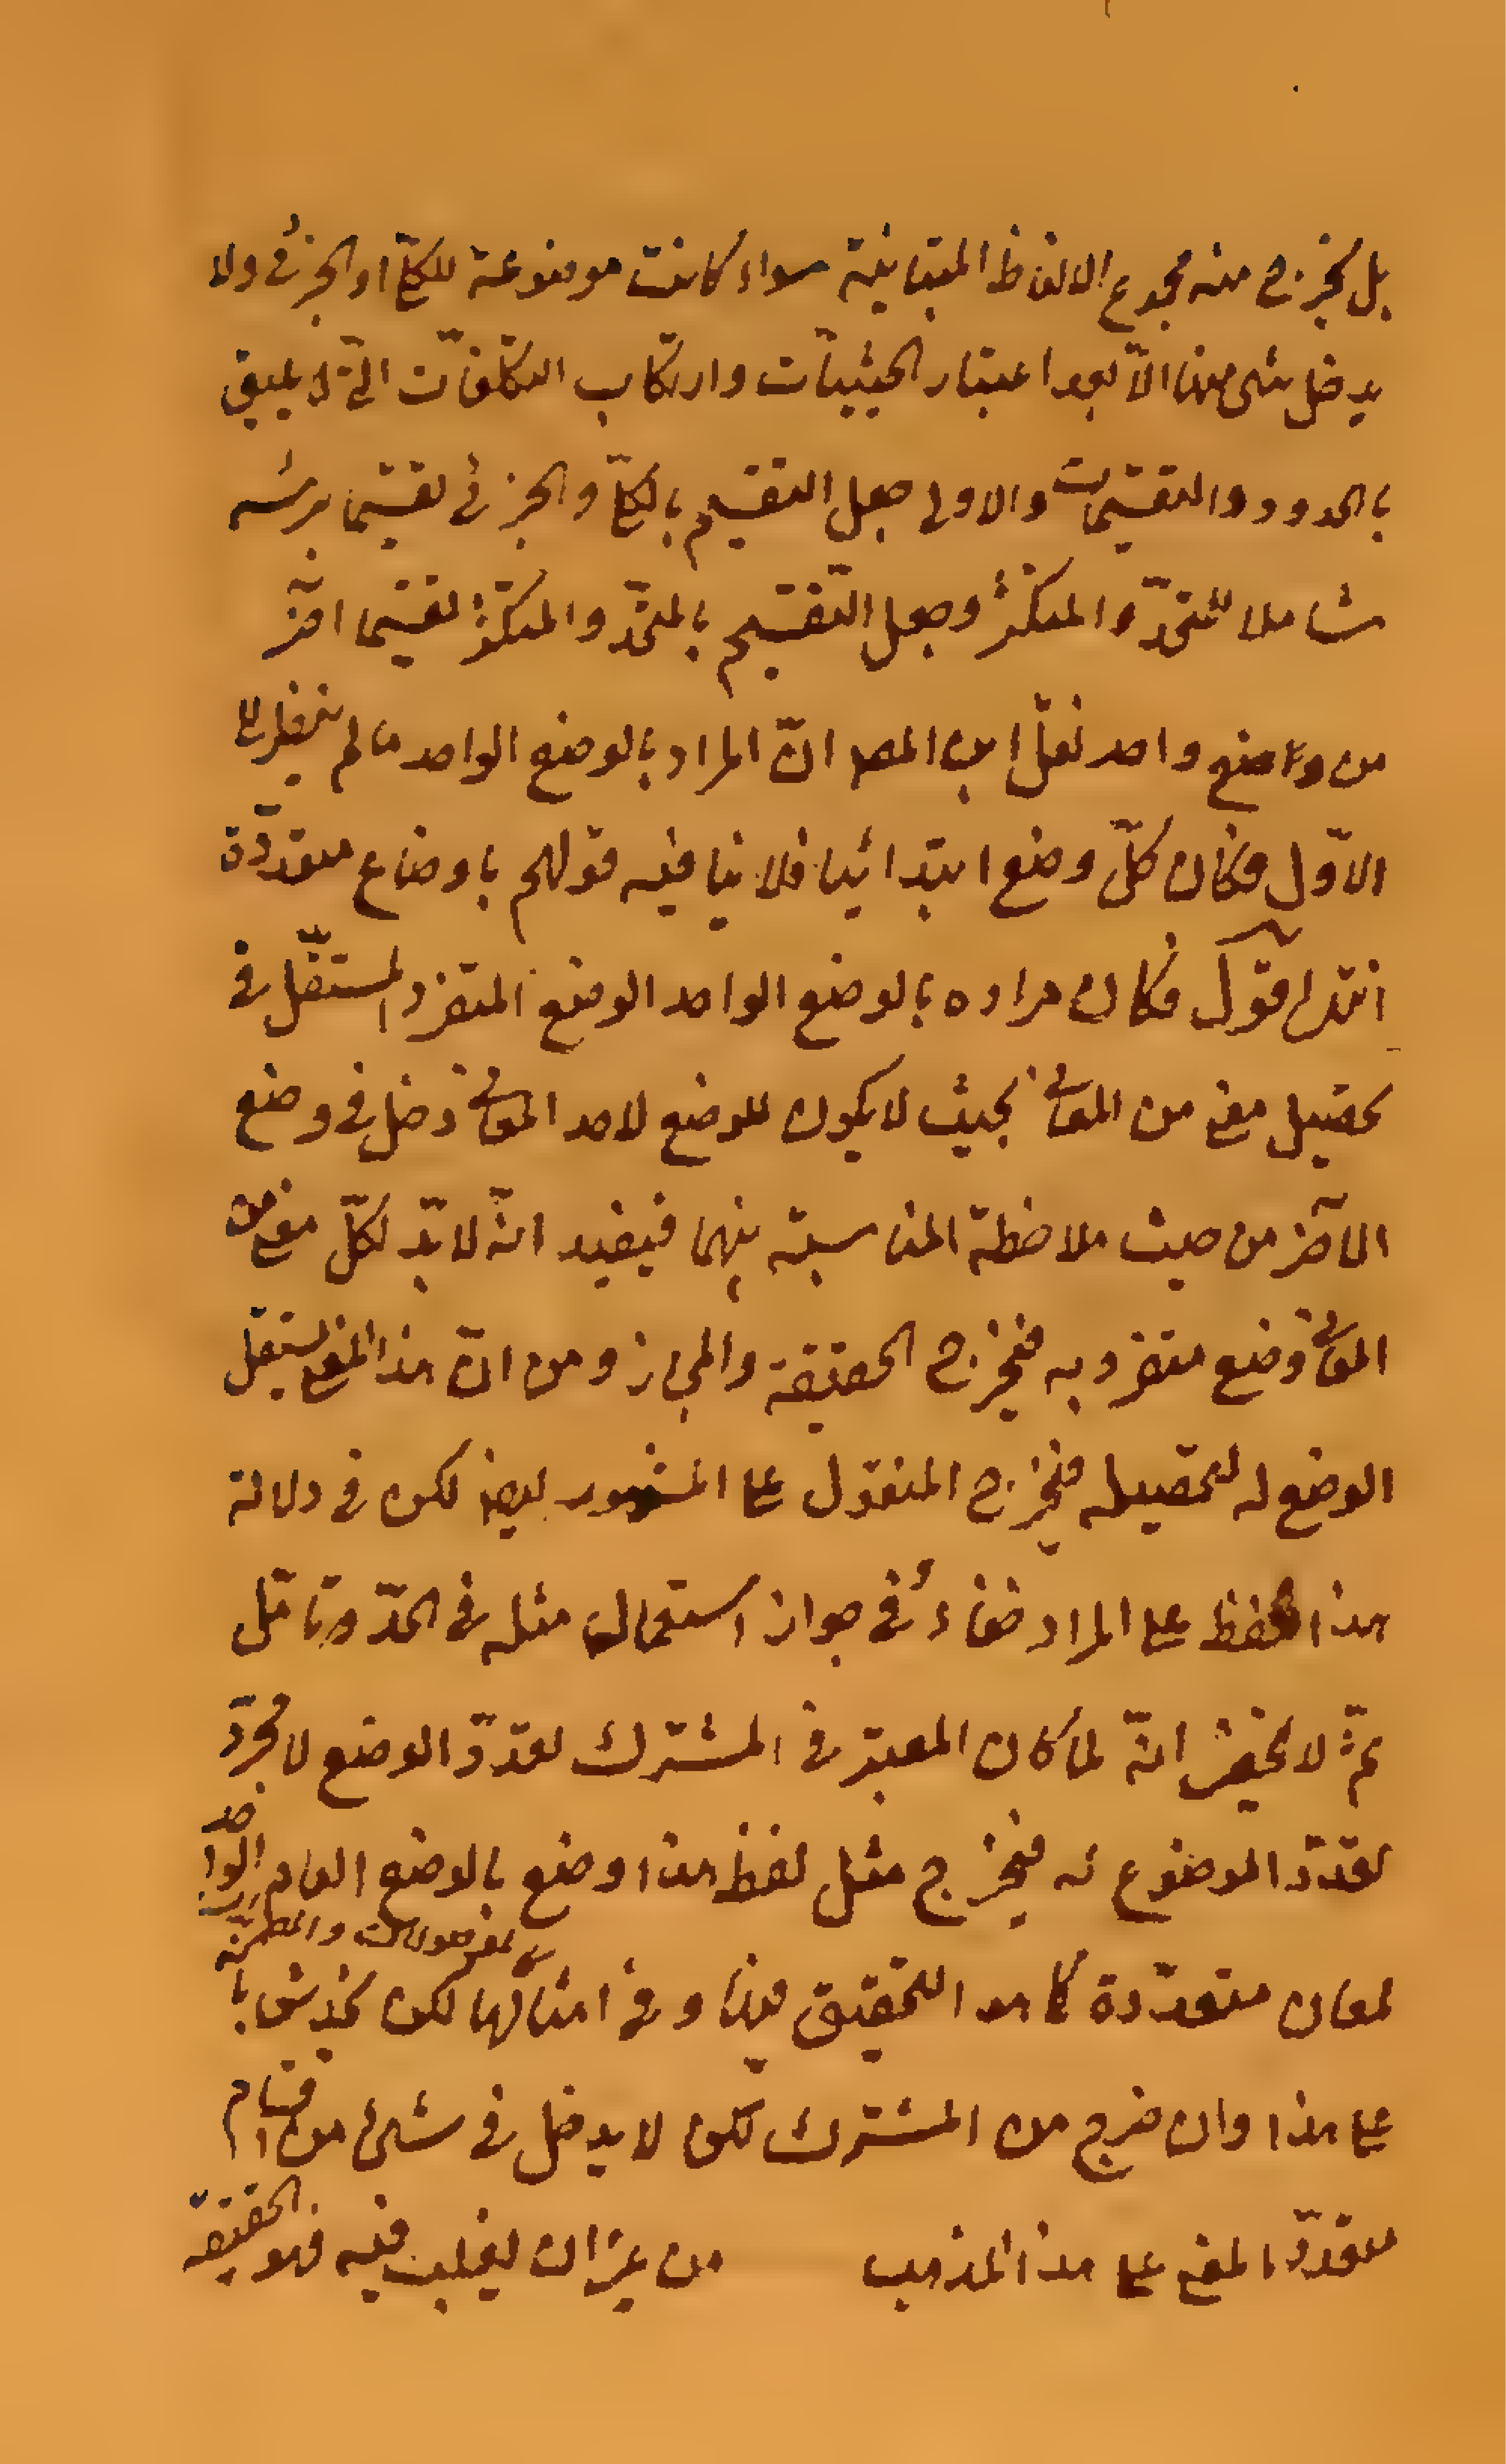 بل يخرج منه مجموع الالفاظ المتباينة سواء كانت موضوعة للكلّى او الجزئى ولا
يدخل شئ منها الّا بعد اعتبار الحيثيات وارتكاب التكلّفات التى لا يليق
بالحدود والتقسيمات والاولى جعل التقسيم بالكلّى والجزئى تقسيما برئسه
شاملا للمتّحد والمتكثّر وجعل التّقسيم بالمتّحد والمتكثّر تقسيما آخر
من واضع واحد نقل ابن المص انّ المراد بالوضع الواحد ما لم ينظر الى
الاوّل فكان كلّ وضع ابتدائيا فلا ينافيه قولهم باوضاع متعدّدة
انتهى اقول فكان مراده بالوضع الواحد الوضع المتفرد المستقلّ فى
تحصيل معنى من المعانى بحيث لا يكون للوضع لاحد المعانى دخل فى وضع
الآخر من حيث ملاحظة المناسبة بينهما فيفيد انّه لا بدّ لكلّ معنى من
المعانى وضع متفرد به فيخرج الحقيقة والمجاز ومن انّ هذا المعنى يستقل
الوضع له لتحصيله فيخرج المنقول على المشهور ايضا لكن فى دلالة
هذا اللفظ على المراد خفاء فى جواز استعمال مثله فى الحدّ وتأمّل
ثمّ لا يخفى انّه لما كان المعبتر فى المشترك تعدّد الوضع لا مجرّد
تعدّد الموضوع له فيخرج مثل لفظ هذا وضع بالوضع العام الواحد
لمعان متعدّدة كما هو التحقيق فيها وفى امثالها لكن يخدش بانّه
على هذا وان خرج من المشترك لكن لا يدخل فى شئ من اقسام
متعدّد المعنى على هذا المذهب من غير ان يغلب فيه فهو الحقيقة